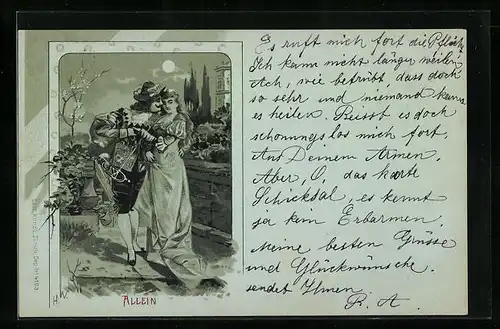 Es ruft mich fort die Pflicht
Ich kann nicht länger weilen
Ach, wie betrübt, dass doch
so sehr und niemand kann
es heilen. Reisst es doch
schonungslos mich fort.
Aus Deinem Armen.
Aber, O, das harte
Schicksal, es kennt
ja kein Erbarmen.
Meine besten Grüsse
und Glückwünsche.
sendet Ihnen
R. A.
H.W.
ALLEIN